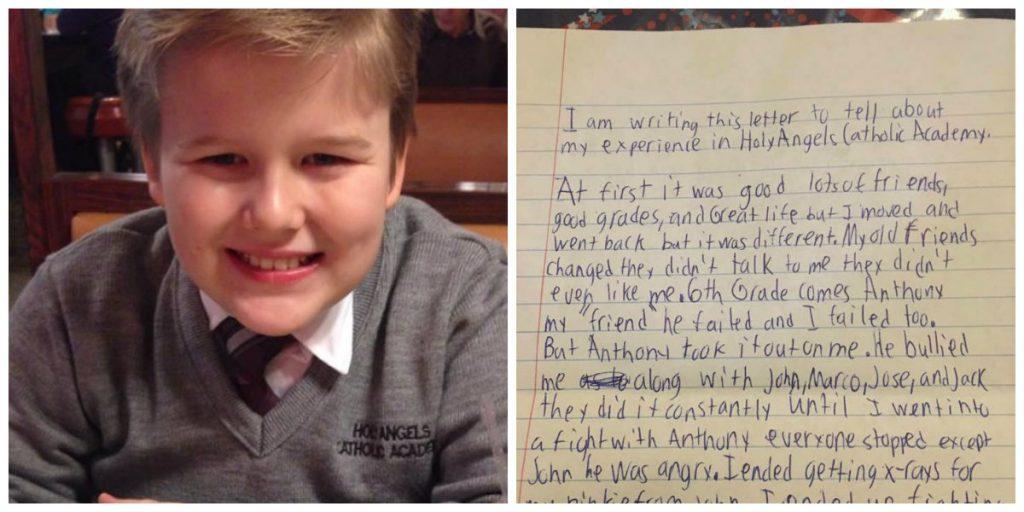 HOLY ANGELS
CATHOLIC ACADE
I am writing this letter to tell about
my experience in HolyAngels Catholic Academy.
At first it was good lots of friends,
good grades, and Great life but I moved and
went back but it was different. My old friends
changed they didn't talk to me they didn't
even like me. 6th Grade comes Anthony
my "friend" he failed and I failed too.
But Anthony took it out on me. He bullied
me along with John, Marco, Jose, and Jack
they did it constantly until I went into
a fight with Anthony everyone stopped except
John he was angry. I ended getting x-rays for
my pinkie from John. I ended up fighting